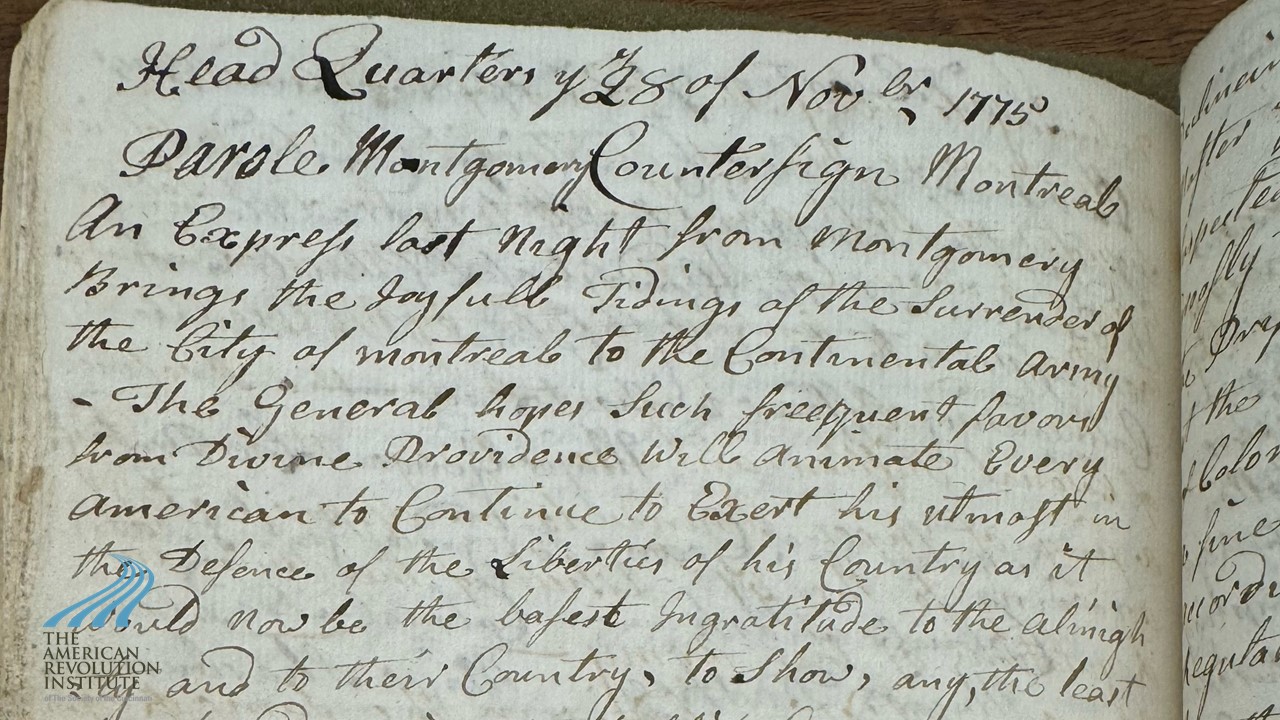 Head Quarters ye 28 of Novbr 1775.
Parole Montgomery Countersign Montreal
An Express last Night from Montgomery
Brings the Joyfull Tidings of the Surrender of
the City of montreal to the Continental Army
- The General hopes Such freequent favors
from Divine Providence Will animate Every
American to Continue to Exert his utmost in
the Defence of the Liberties of his Country as it
would now be the basest Ingratitude to the almigh
ty and to their Country, to Show, any, the least
THE
AMERICAN
REVOLUTION
INSTITUTE
of The Society of the Cincinnati
after
the
fine